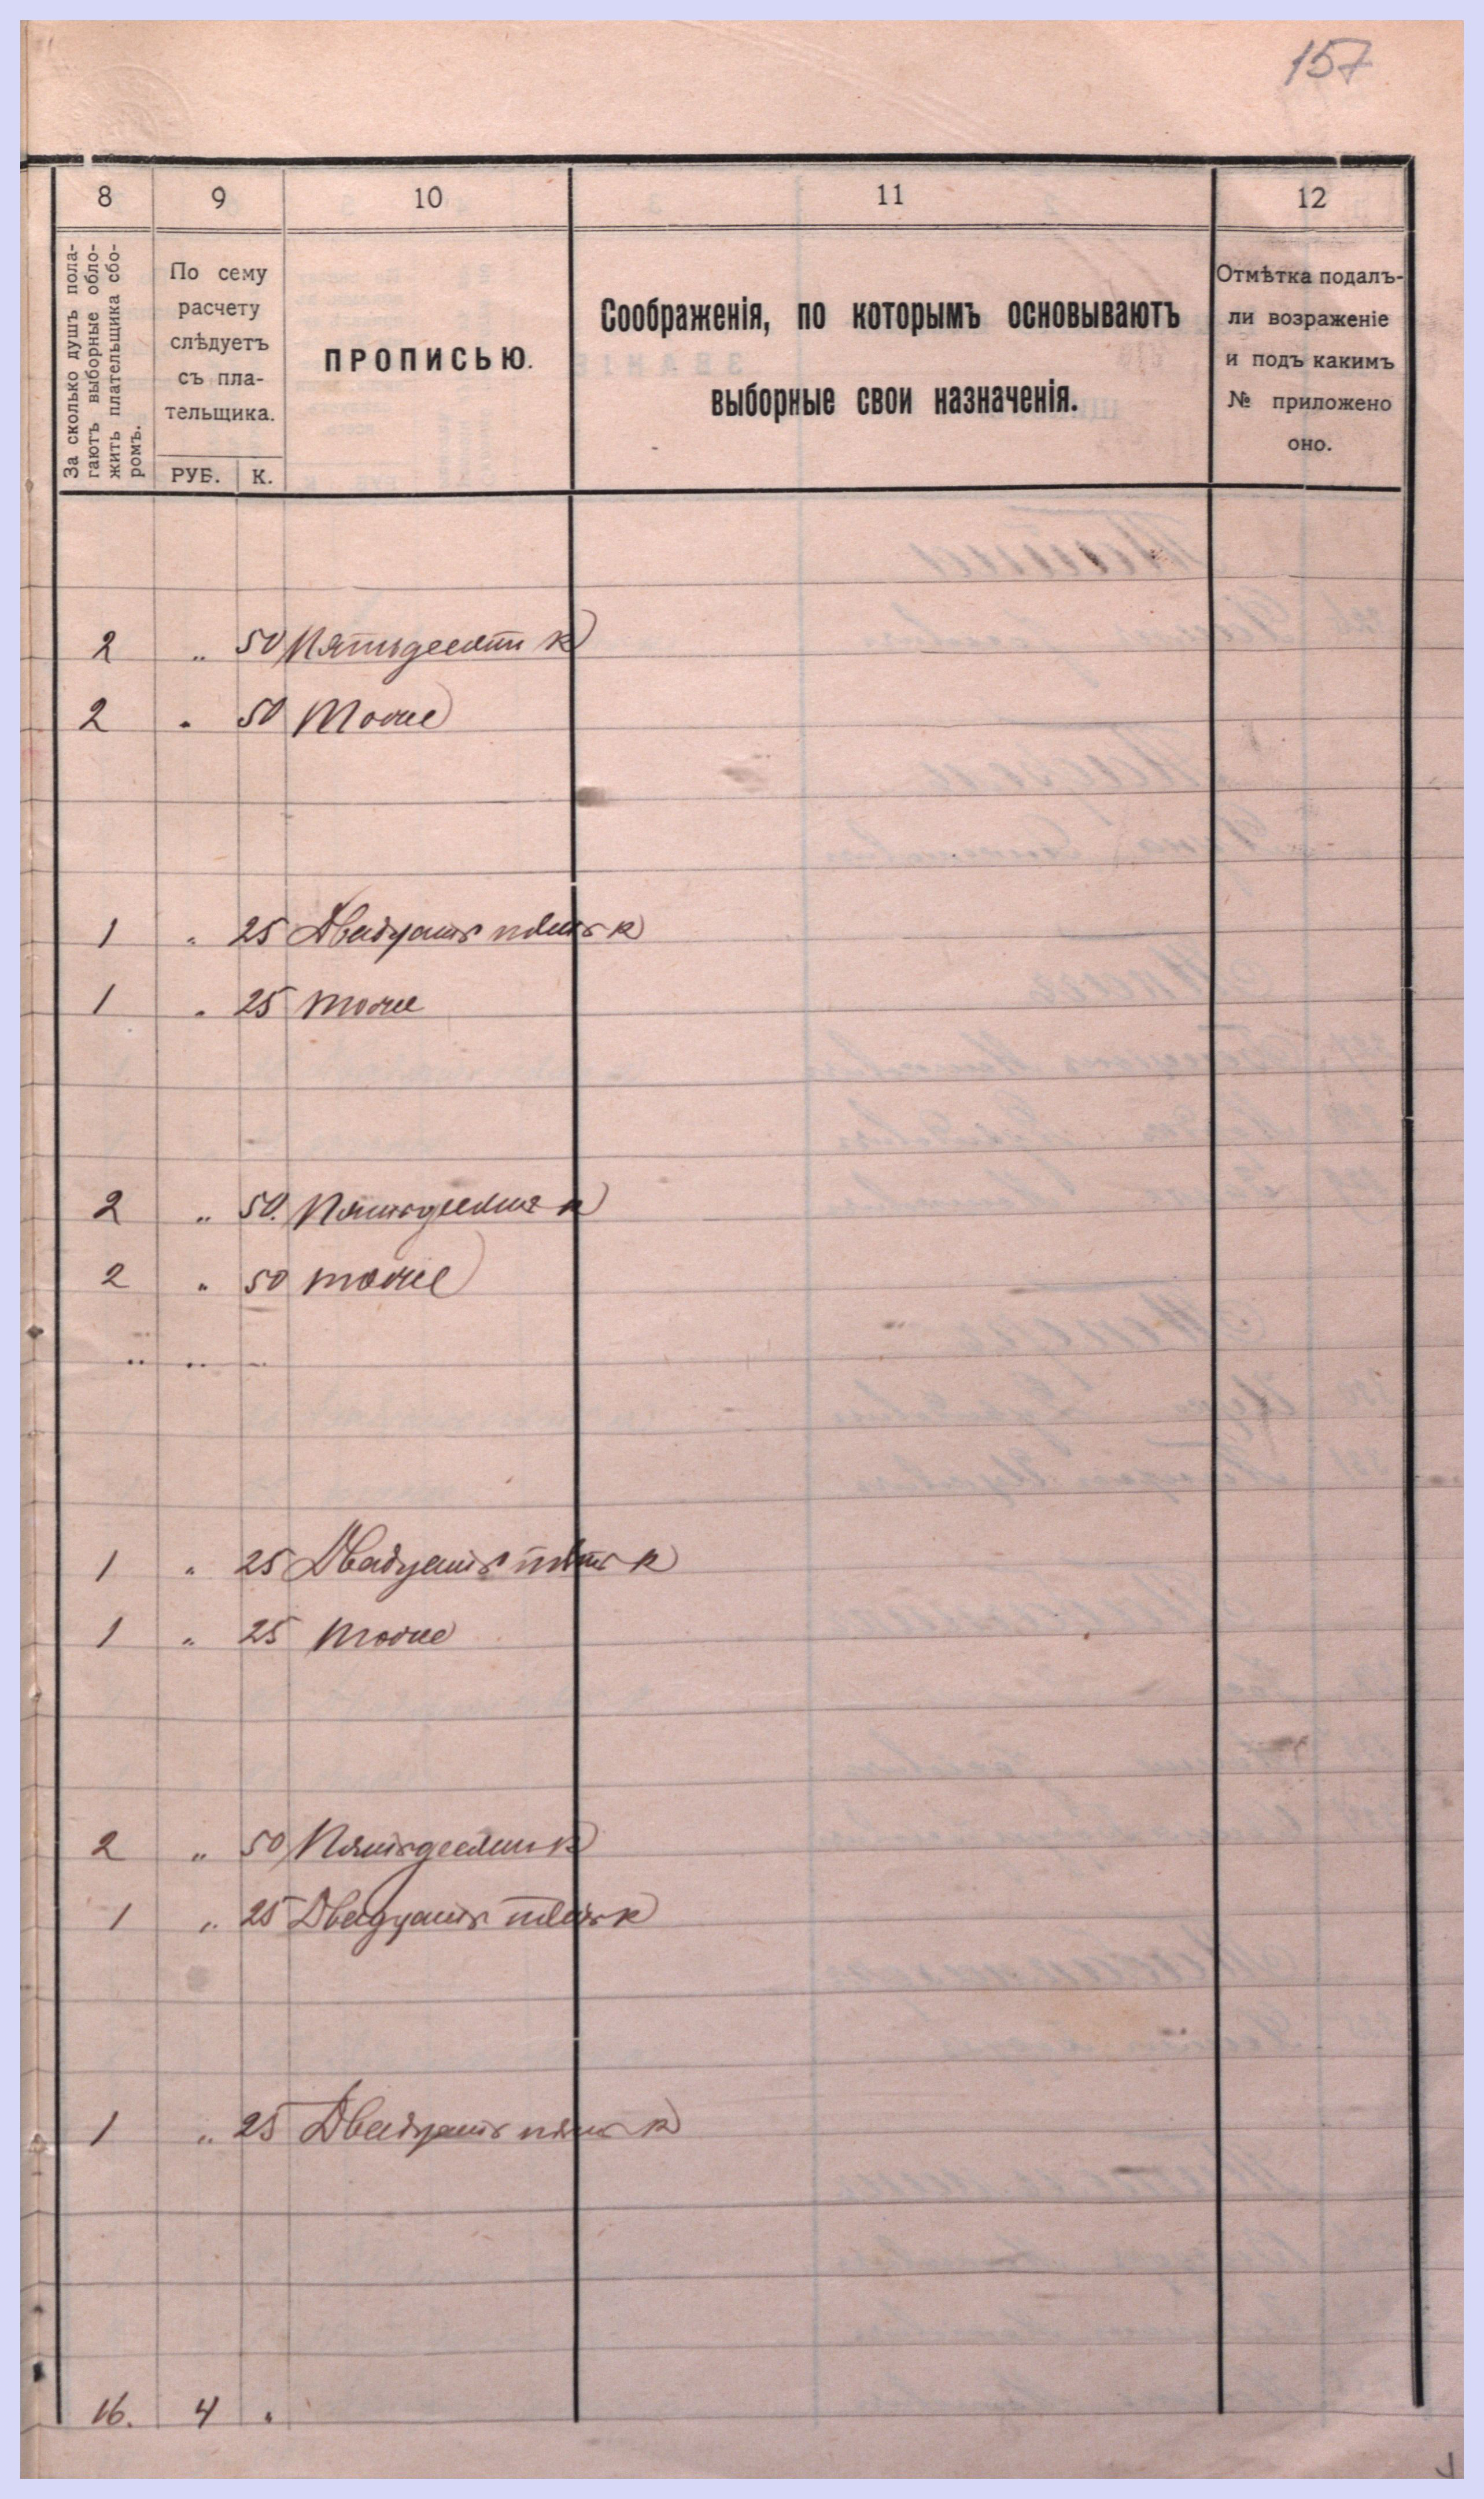 157
8 9 10 11 12
За сколько душъ пола-
гаютъ выборные обло-
жить плательщика сбо-
ромъ.
По сему
расчету
слѣдуетъ
съ пла-
тельщика.
РУБ. К.
ПРОПИСЬЮ.
Соображенія, по которымъ основываютъ
выборные свои назначенія.
Отмѣтка подалъ-
ли возраженіе
и подъ какимъ
№ приложено
оно.
2 „ 50 Пятьдесятъ к
2 „ 50 Тоже
1 „ 25 Двадцать пять к
1 „ 25 тоже
2 „ 50. Пятьдесятъ к
2 „ 50 тоже
„ „ „
1 „ 25 Двадцать пять к
1 „ 25 тоже
2 „ 50 Пятьдесятъ к
1 „ 25 Двадцать пять к
1 „ 25 Двадцать пять к
16. 4 „